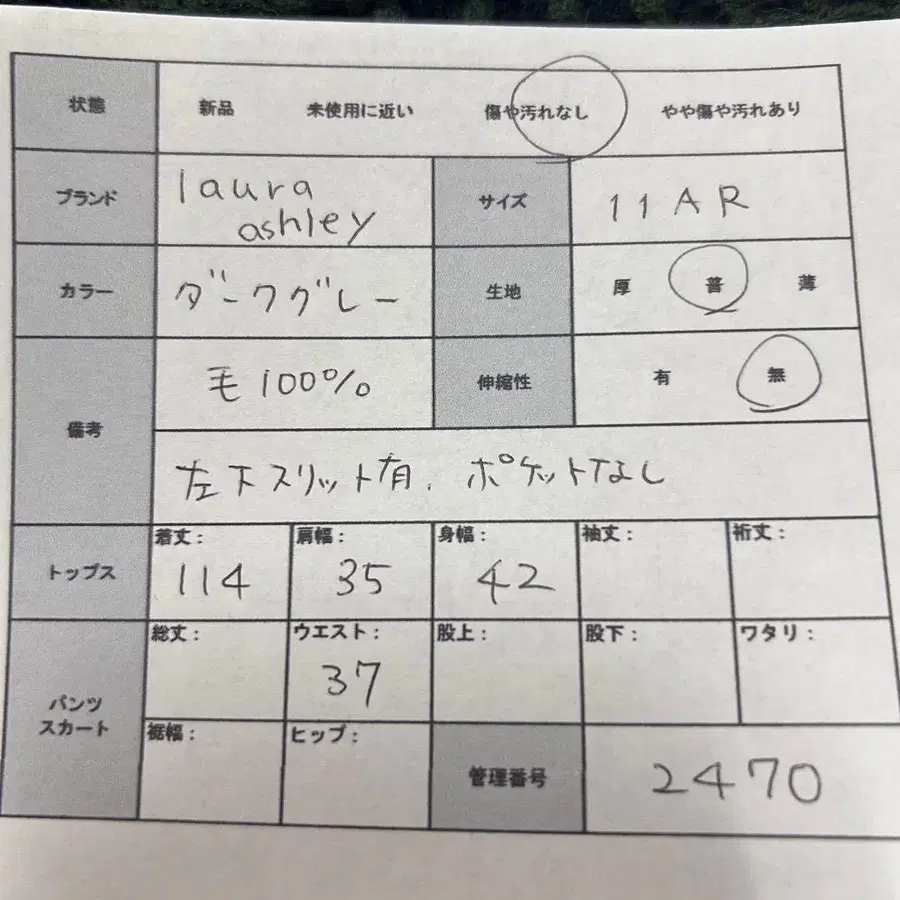 状態 新品 未使用に近い 傷や汚れなし やや傷や汚れあり
ブランド laura ashley サイズ 11AR
カラー ダークグレー 生地 厚 普 薄
備考 毛100% 伸縮性 有 無
左下スリット有. ポケットなし
トップス 着丈: 114 肩幅: 35 身幅: 42 袖丈: 裄丈:
パンツ スカート 総丈: ウエスト: 37 股上: 股下: ワタリ:
裾幅: ヒップ: 管理番号 2470